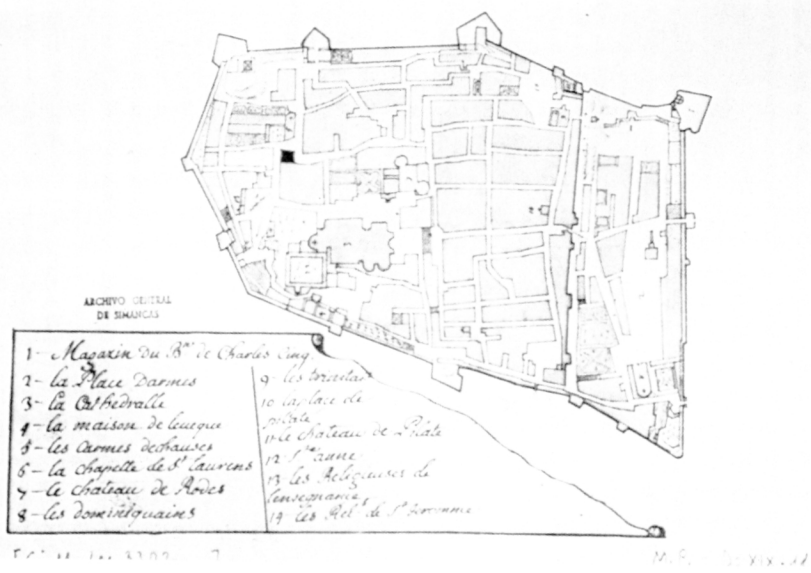 ARCHIVO GENERAL
DE SIMANCAS
1 - Magazin du B.on de Charles Cinq.
2 - la Place Darmes
3 - la Cathedralle
4 - la maison de leveque
5 - les Carmes dechauses
6 - la chapelle de St laurens
7 - le chateau de Rodes
8 - les dominiquains
9 - les trinitai
10 la place de
pilate
11 - le chateau de Pilate
12 Ste anne
13 les Religieuses de
lensegnance
14 - les Rel. de St Geromme